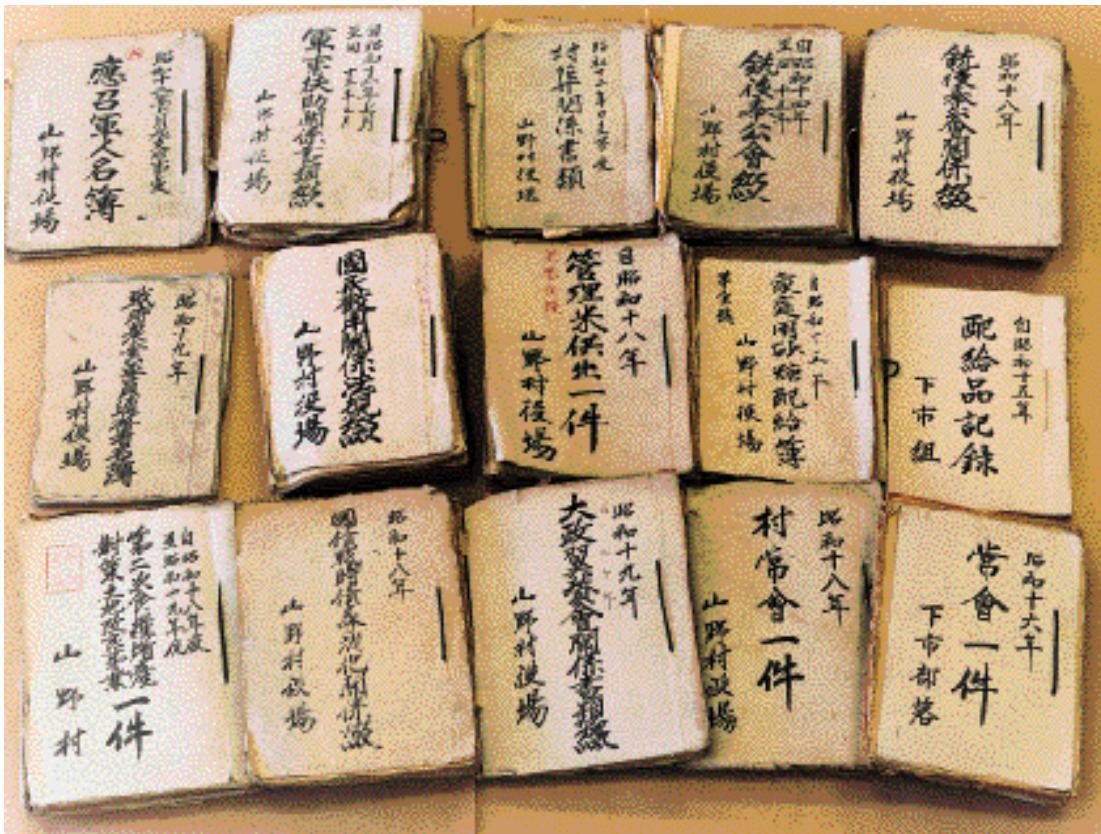 應召軍人名簿
山野村役場
軍事扶助關係書類綴
山野村役場
村葬関係書類
山野村役場
銃後奉公會綴
山野村役場
昭和十八年
銃後奉公會關係綴
山野村役場
昭和十九年
山野村役場
國民徴用關係法規綴
山野村役場
自昭和十八年
管理米供出一件
山野村役場
自昭和十五年
家庭用砂糖配給簿
山野村役場
自昭和十五年
配給品記録
下市組
自昭和十八年度
至昭和十九年度
第二次食糧増産
對策土地改良事業
一件
山野村
昭和十八年
山野村役場
昭和十九年
大政翼賛會關係書類綴
山野村役場
昭和十八年
村常會一件
山野村役場
昭和十六年
常會一件
下市部落